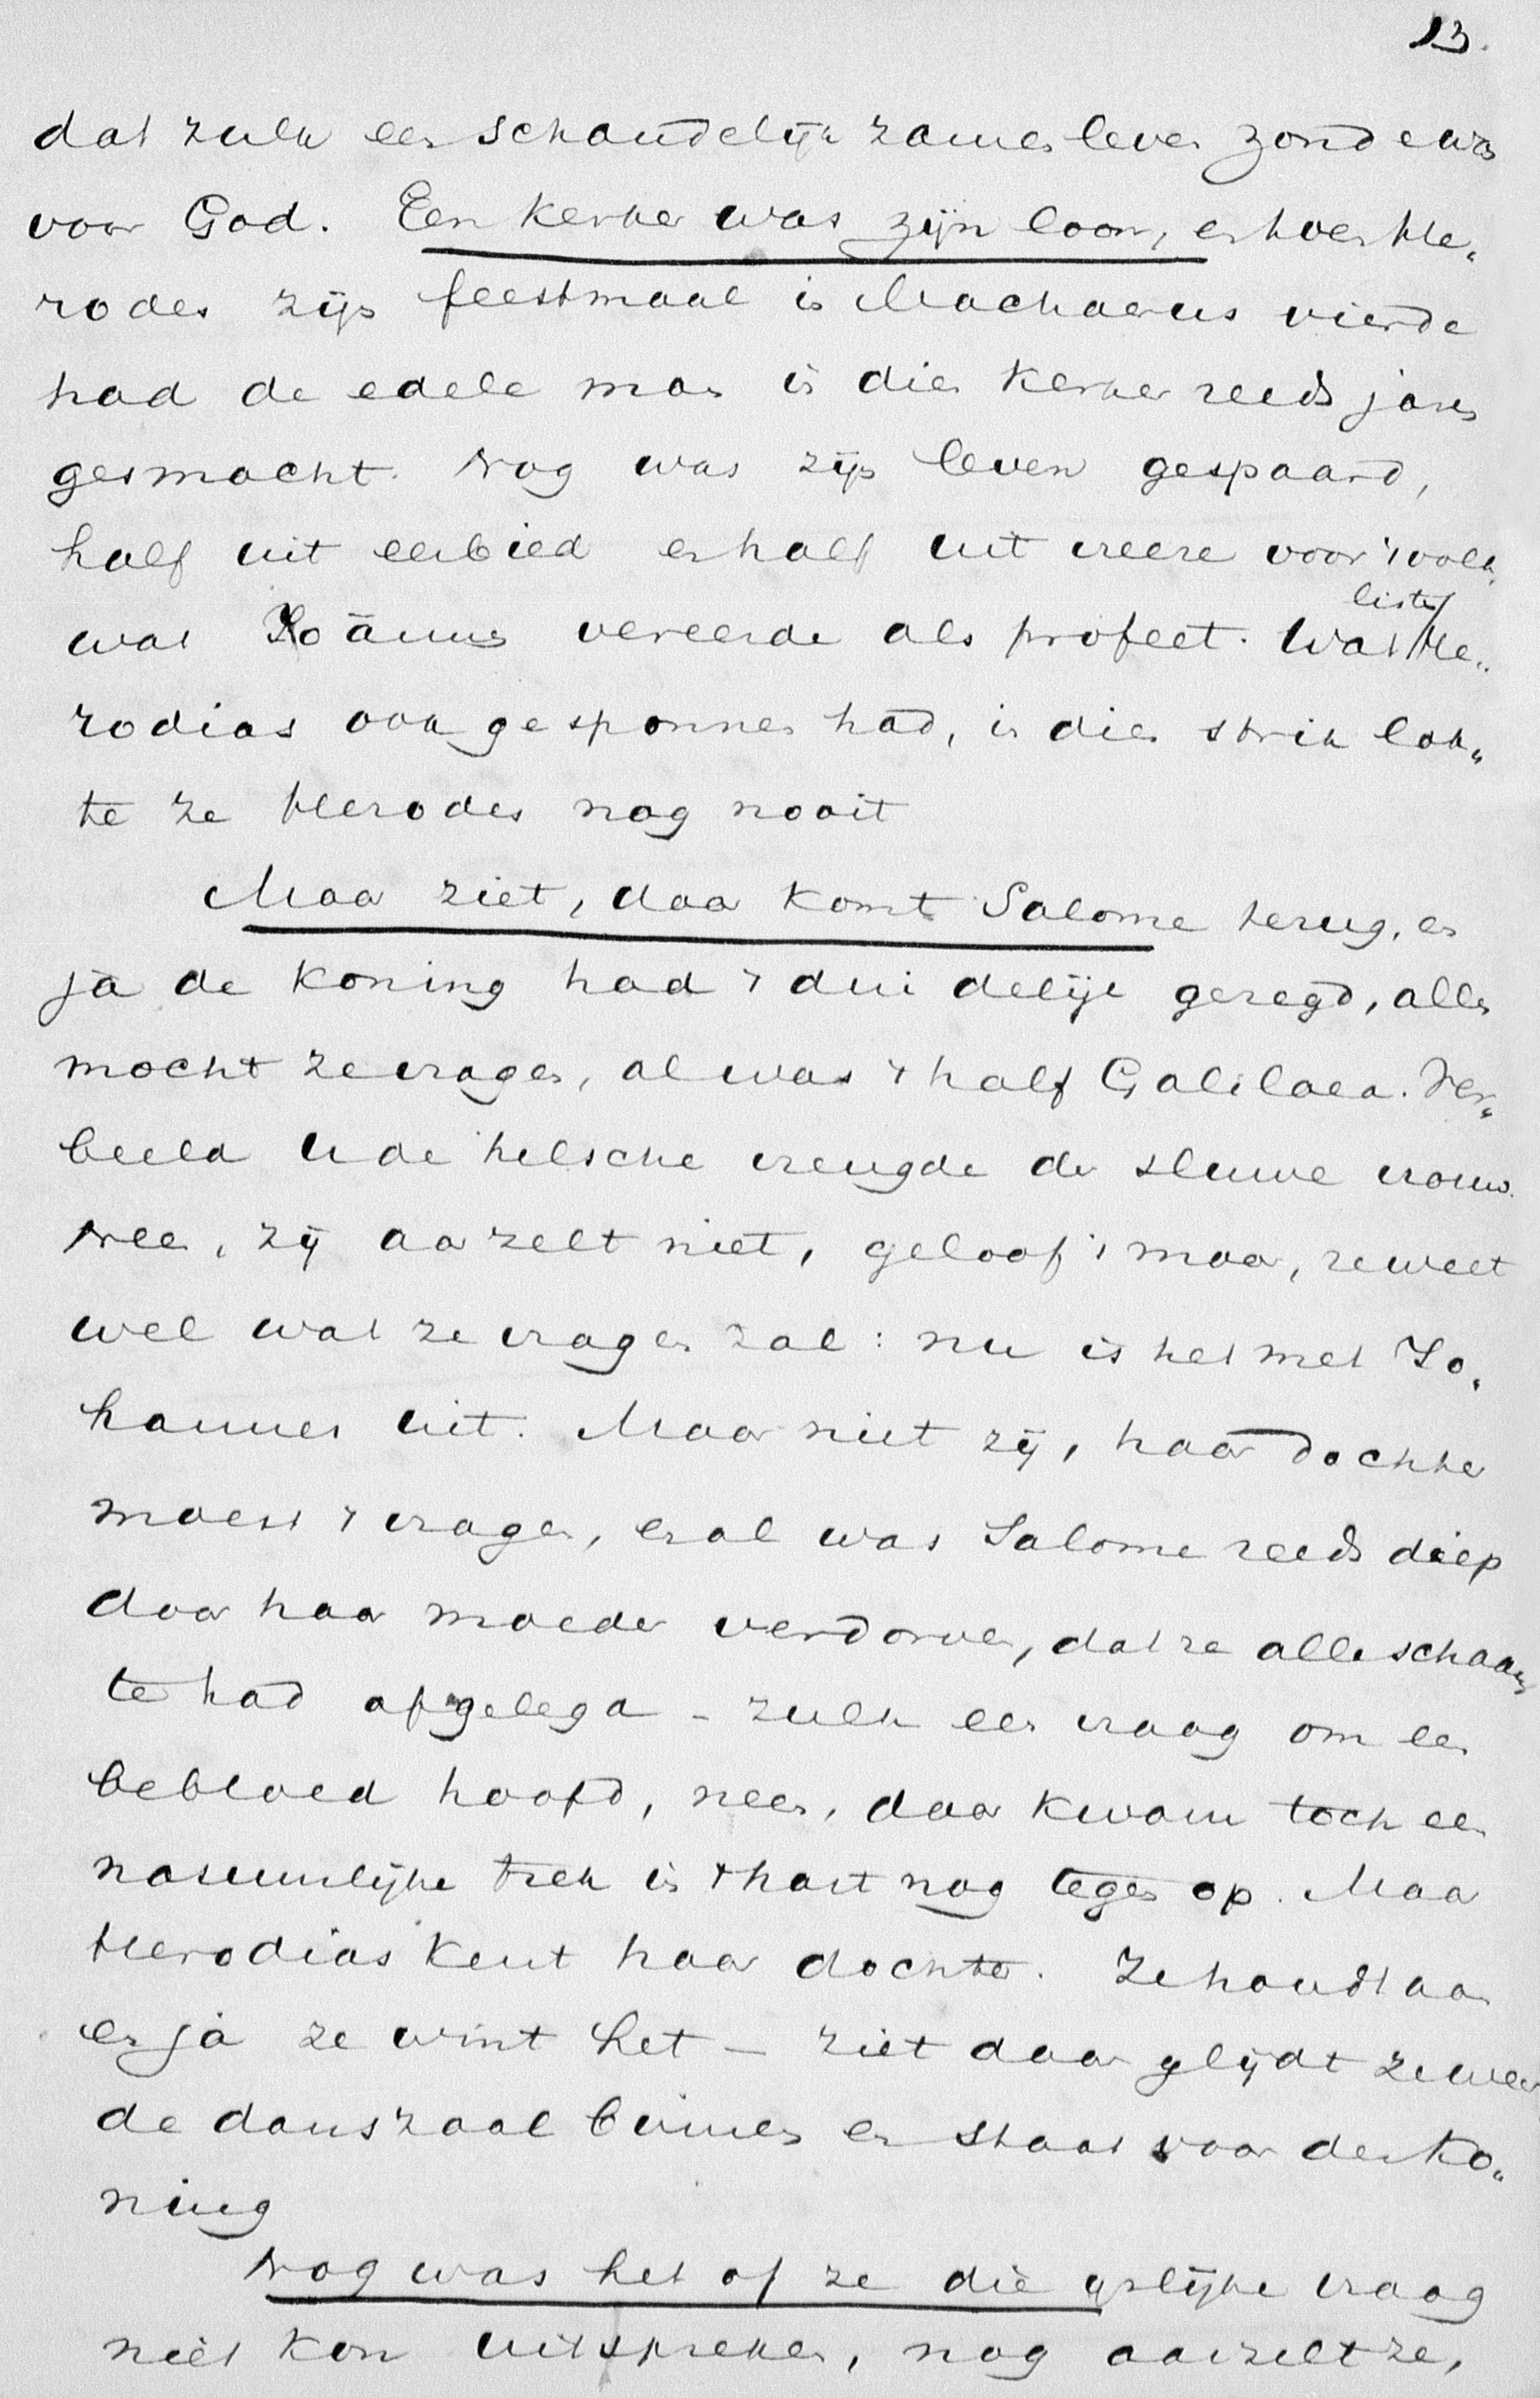 13.
dat zulk een schandelijk zamenleven zonde was
voor God. Een kerker was zijn loon, en toen He„
rodes zijn feestmaal in Machaerus vierde
had de edele man in dien kerker reeds jaren
gesmacht. Nog was zijn leven gespaard,
half uit eerbied en half uit vreeze voor 't volk,
wat Joännes vereerde als profeet. Wat listen He„
rodias ook gesponnen had, in dien strik lok„
te ze Herodes nog nooit
Maar ziet, daar komt Salome terug, en
ja de koning had 't duidelijk gezegd, alles
mocht ze vragen, al was 't half Galilaea. Ver„
beeld u de helsche vreugde der sluwe vrouw.
Neen, zij aarzelt niet, geloof 't maar, ze weet
wel wat ze vragen zal: nu is het met Jo„
hannes uit. Maar niet zij, haar dochter
moest 't vragen, en al was Salome reeds diep
door haar moeder verdorven, dat ze alle schaam
te had afgelegd – zulk een vraag om een
bebloed hoofd, neen, daar kwam toch een
natuurlijke trek in 't hart nog tegen op. Maar
Herodias kent haar dochter. Ze houdt aan
en ja ze wint het – ziet daar glijdt ze weer
de danszaal binnen en staat voor den Ko„
ning
Nog was het of ze die ijslijke vraag
niet kon uitspreken, nog aarzelt ze,